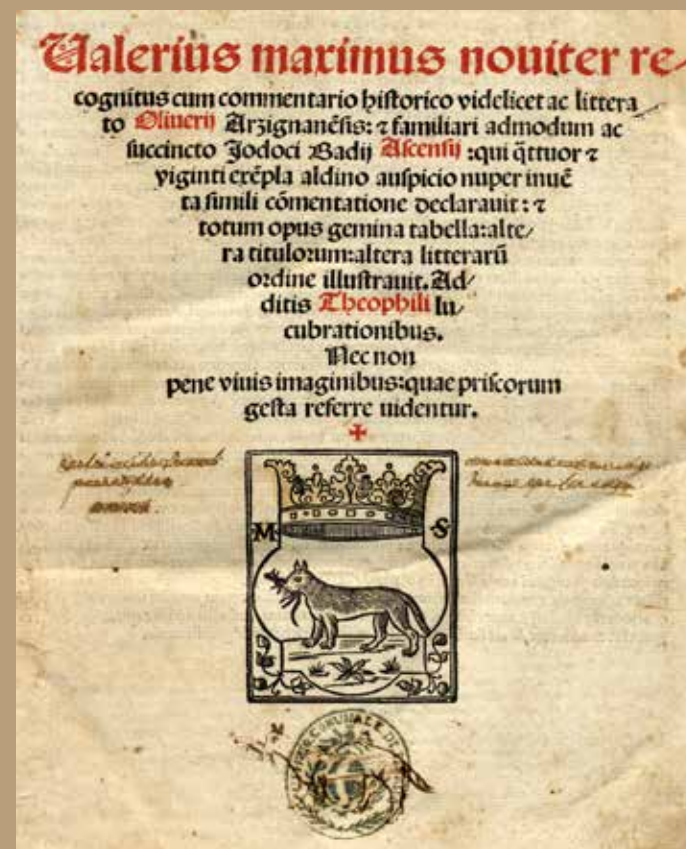 Ualerius maximus noviter re/
cognitus cum commentario historico videlicet ac littera
to Oliuerij Arzignanēsis: ⁊ familiari admodum ac
succincto Jodoci Badij Ascensij :qui q̄ttuor ⁊
viginti exēpla aldino auspicio nuper inuē
ta simili cōmentatione declarauit: ⁊
totum opus gemina tabella:alte/
ra titulorum:altera litterarū
ordine illustrauit. Ad/
ditis Theophili lu/
cubrationibus.
Nec non
pene viuis imaginibus:quae priscorum
gesta referre uidentur.
M S